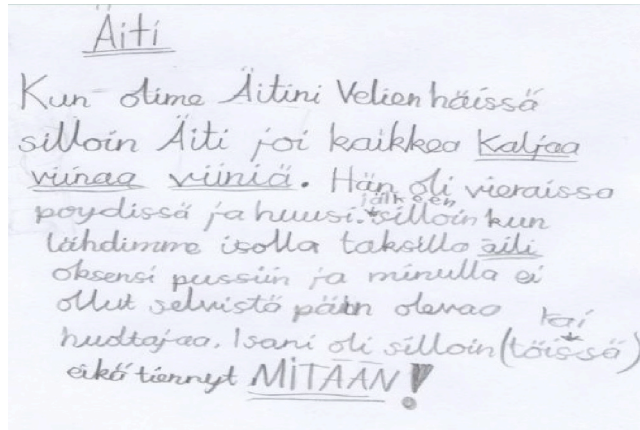 Äiti
Kun olime Äitini Velien häissä
silloin Äiti joi kaikkea Kaljaa
viinaa viiniä. Hän oli vieraissa
jälkeen
poydissä ja huusi. silloin kun
lähdimme isolla taksilla äiti
oksensi pussiin ja minulla ei
ollut selvistä päin olevaa
kai
hudtajaa. Isani oli silloin (töissä)
eikä tiennyt MITÄÄN!